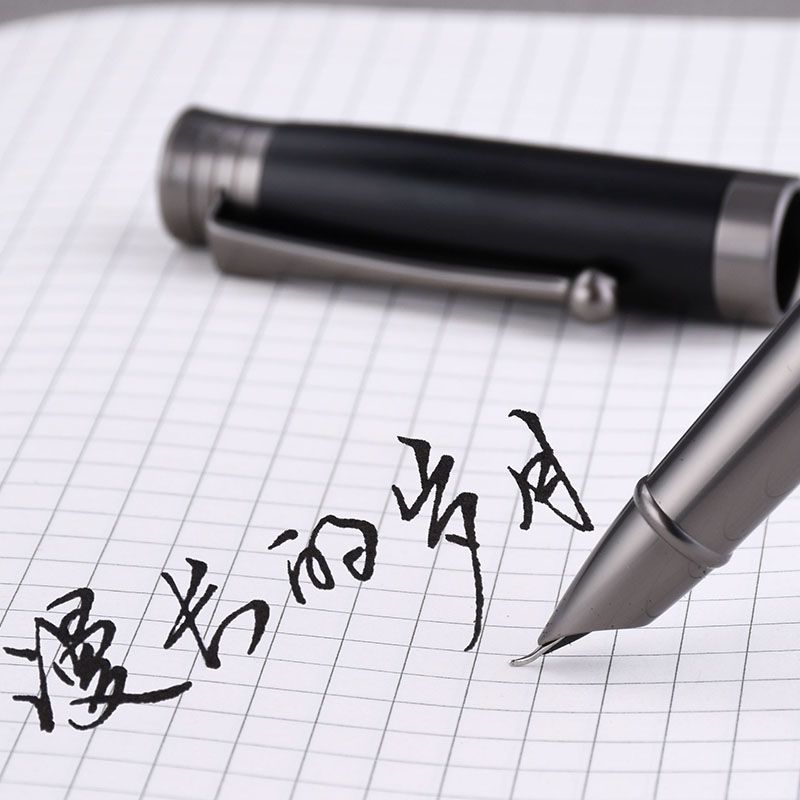 漫长的岁月